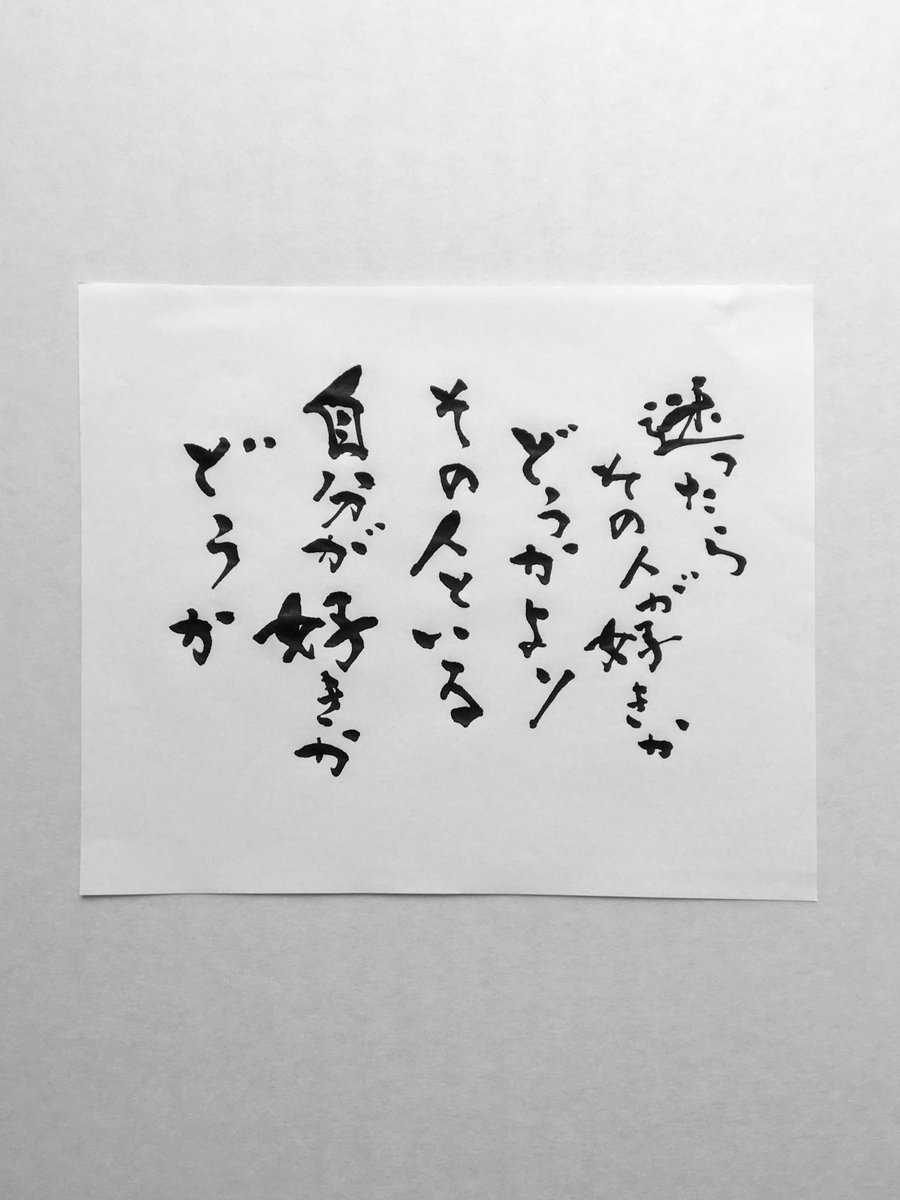 迷ったら
その人が好きか
どうかより
その人といる
自分が好きか
どうか